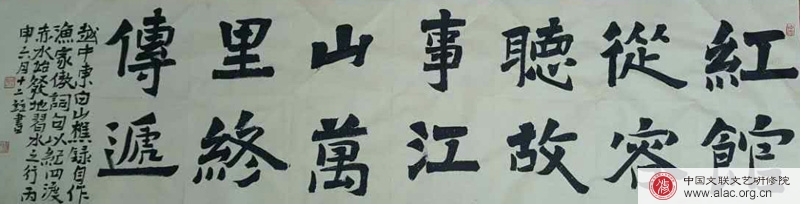 紅館
從容
聽故
事江
山萬
里終
傳遞
越中東白山樵錄自作
漁家傲詞句以紀四渡
赤水始發地習水之行丙
申六月十二書
中国文联文艺研修院
www.alac.org.cn